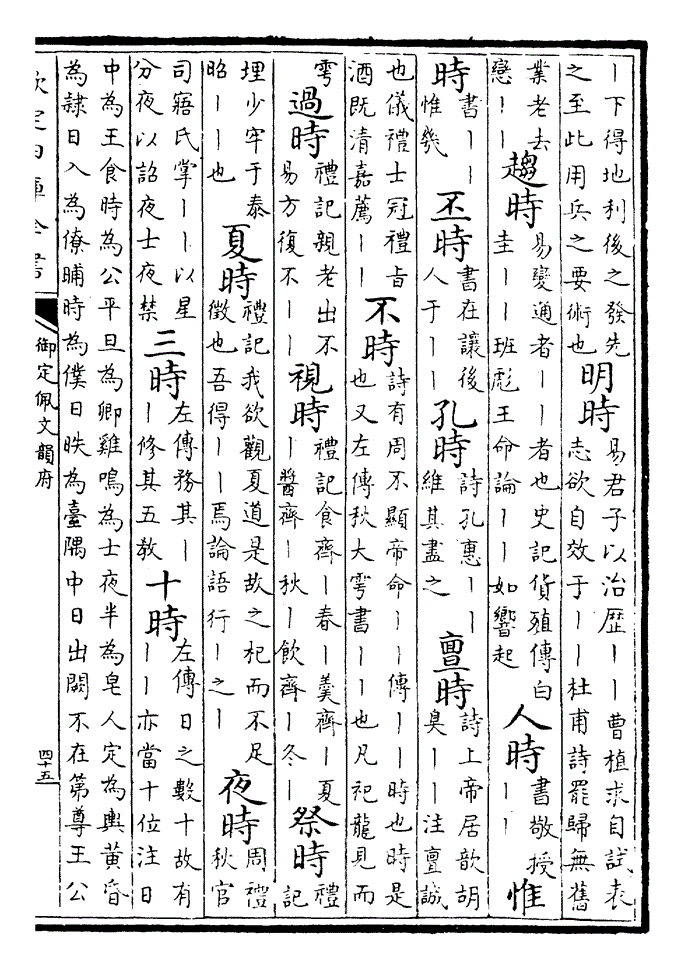 ｜下得地利後之發先
之至此用兵之要術也
明時
易君子以治歴｜｜曹植求自試表
志欲自效于｜｜杜甫詩罷歸無舊
業老去
戀｜｜
趨時
易變通者｜｜者也史記貨殖傳白
圭｜｜班彪王命論｜｜如響起
人時
書敬授
｜｜
惟
時
書｜｜
惟幾
丕時
書在讓後
人于｜｜
孔時
詩孔惠｜｜
維其盡之
亶時
詩上帝居歆胡
臭｜｜注亶誠
也儀禮士冠禮㫖
酒既清嘉薦｜｜
不時
詩有周不顯帝命｜｜傳｜｜時也時是
也又左傳秋大雩書｜｜也凡祀龍見而
雩
過時
禮記親老出不
易方復不｜｜
視時
禮記食齊｜春｜羮齊｜夏
｜醬齊｜秋｜飲齊｜冬｜
祭時
禮
記
埋少牢于泰
昭｜｜也
夏時
禮記我欲觀夏道是故之杞而不足
徵也吾得｜｜焉論語行｜之｜
夜時
周禮
秋官
司寤氏掌｜｜以星
分夜以詔夜士夜禁
三時
左傳務其｜
｜修其五教
十時
左傳日之數十故有
｜｜亦當十位注日
中為王食時為公平旦為卿雞鳴為士夜半為皂人定為輿黃昏
為隸日入為僚晡時為僕日昳為臺隅中日出闕不在第尊王公
欽定四庫全書
御定佩文韻府
四十五